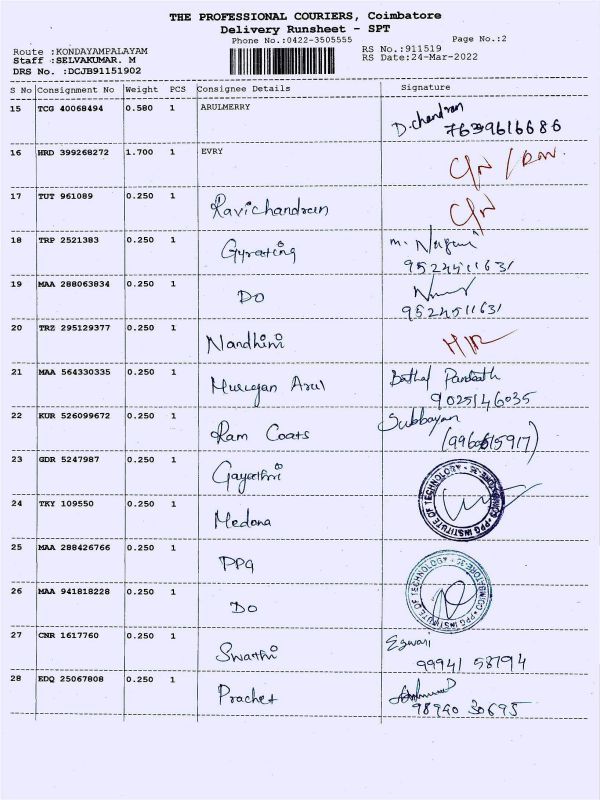 THE PROFESSIONAL COURIERS, Coimbatore
Delivery Runsheet - SPT
Phone No.:0422-3505555
Page No.:2
Route :KONDAYAMPALAYAM
Staff :SELVAKUMAR. M
DRS No. :DCJB91151902
RS No.:911519
RS Date:24-Mar-2022
S No Consignment No Weight PCS Consignee Details Signature
15 TCG 40068494 0.580 1 ARULMERRY D. chandran
7639616686
16 HRD 399268272 1.700 1 EVRY
17 TUT 961089 0.250 1 Ravichandran
18 TRP 2521383 0.250 1 Gyrating m.
9524511631
19 MAA 288063834 0.250 1 DO
9524511631
20 TRZ 295129377 0.250 1 Nandhini
21 MAA 564330335 0.250 1 Murugan Arul
9025146035
22 KUR 526099672 0.250 1 Ram Coats Subbayan
23 GDR 5247987 0.250 1 Gayathri
PPG INSTITUTE OF TECHNOLOGY COIMBATORE-35
24 TKY 109550 0.250 1 Medona
25 MAA 288426766 0.250 1 PPG
PPG INSTITUTE OF TECHNOLOGY COIMBATORE-35
26 MAA 941818228 0.250 1 DO
27 CNR 1617760 0.250 1 Swathi Eswari
99941 58794
28 EDQ 25067808 0.250 1 Prachet
98940 30695